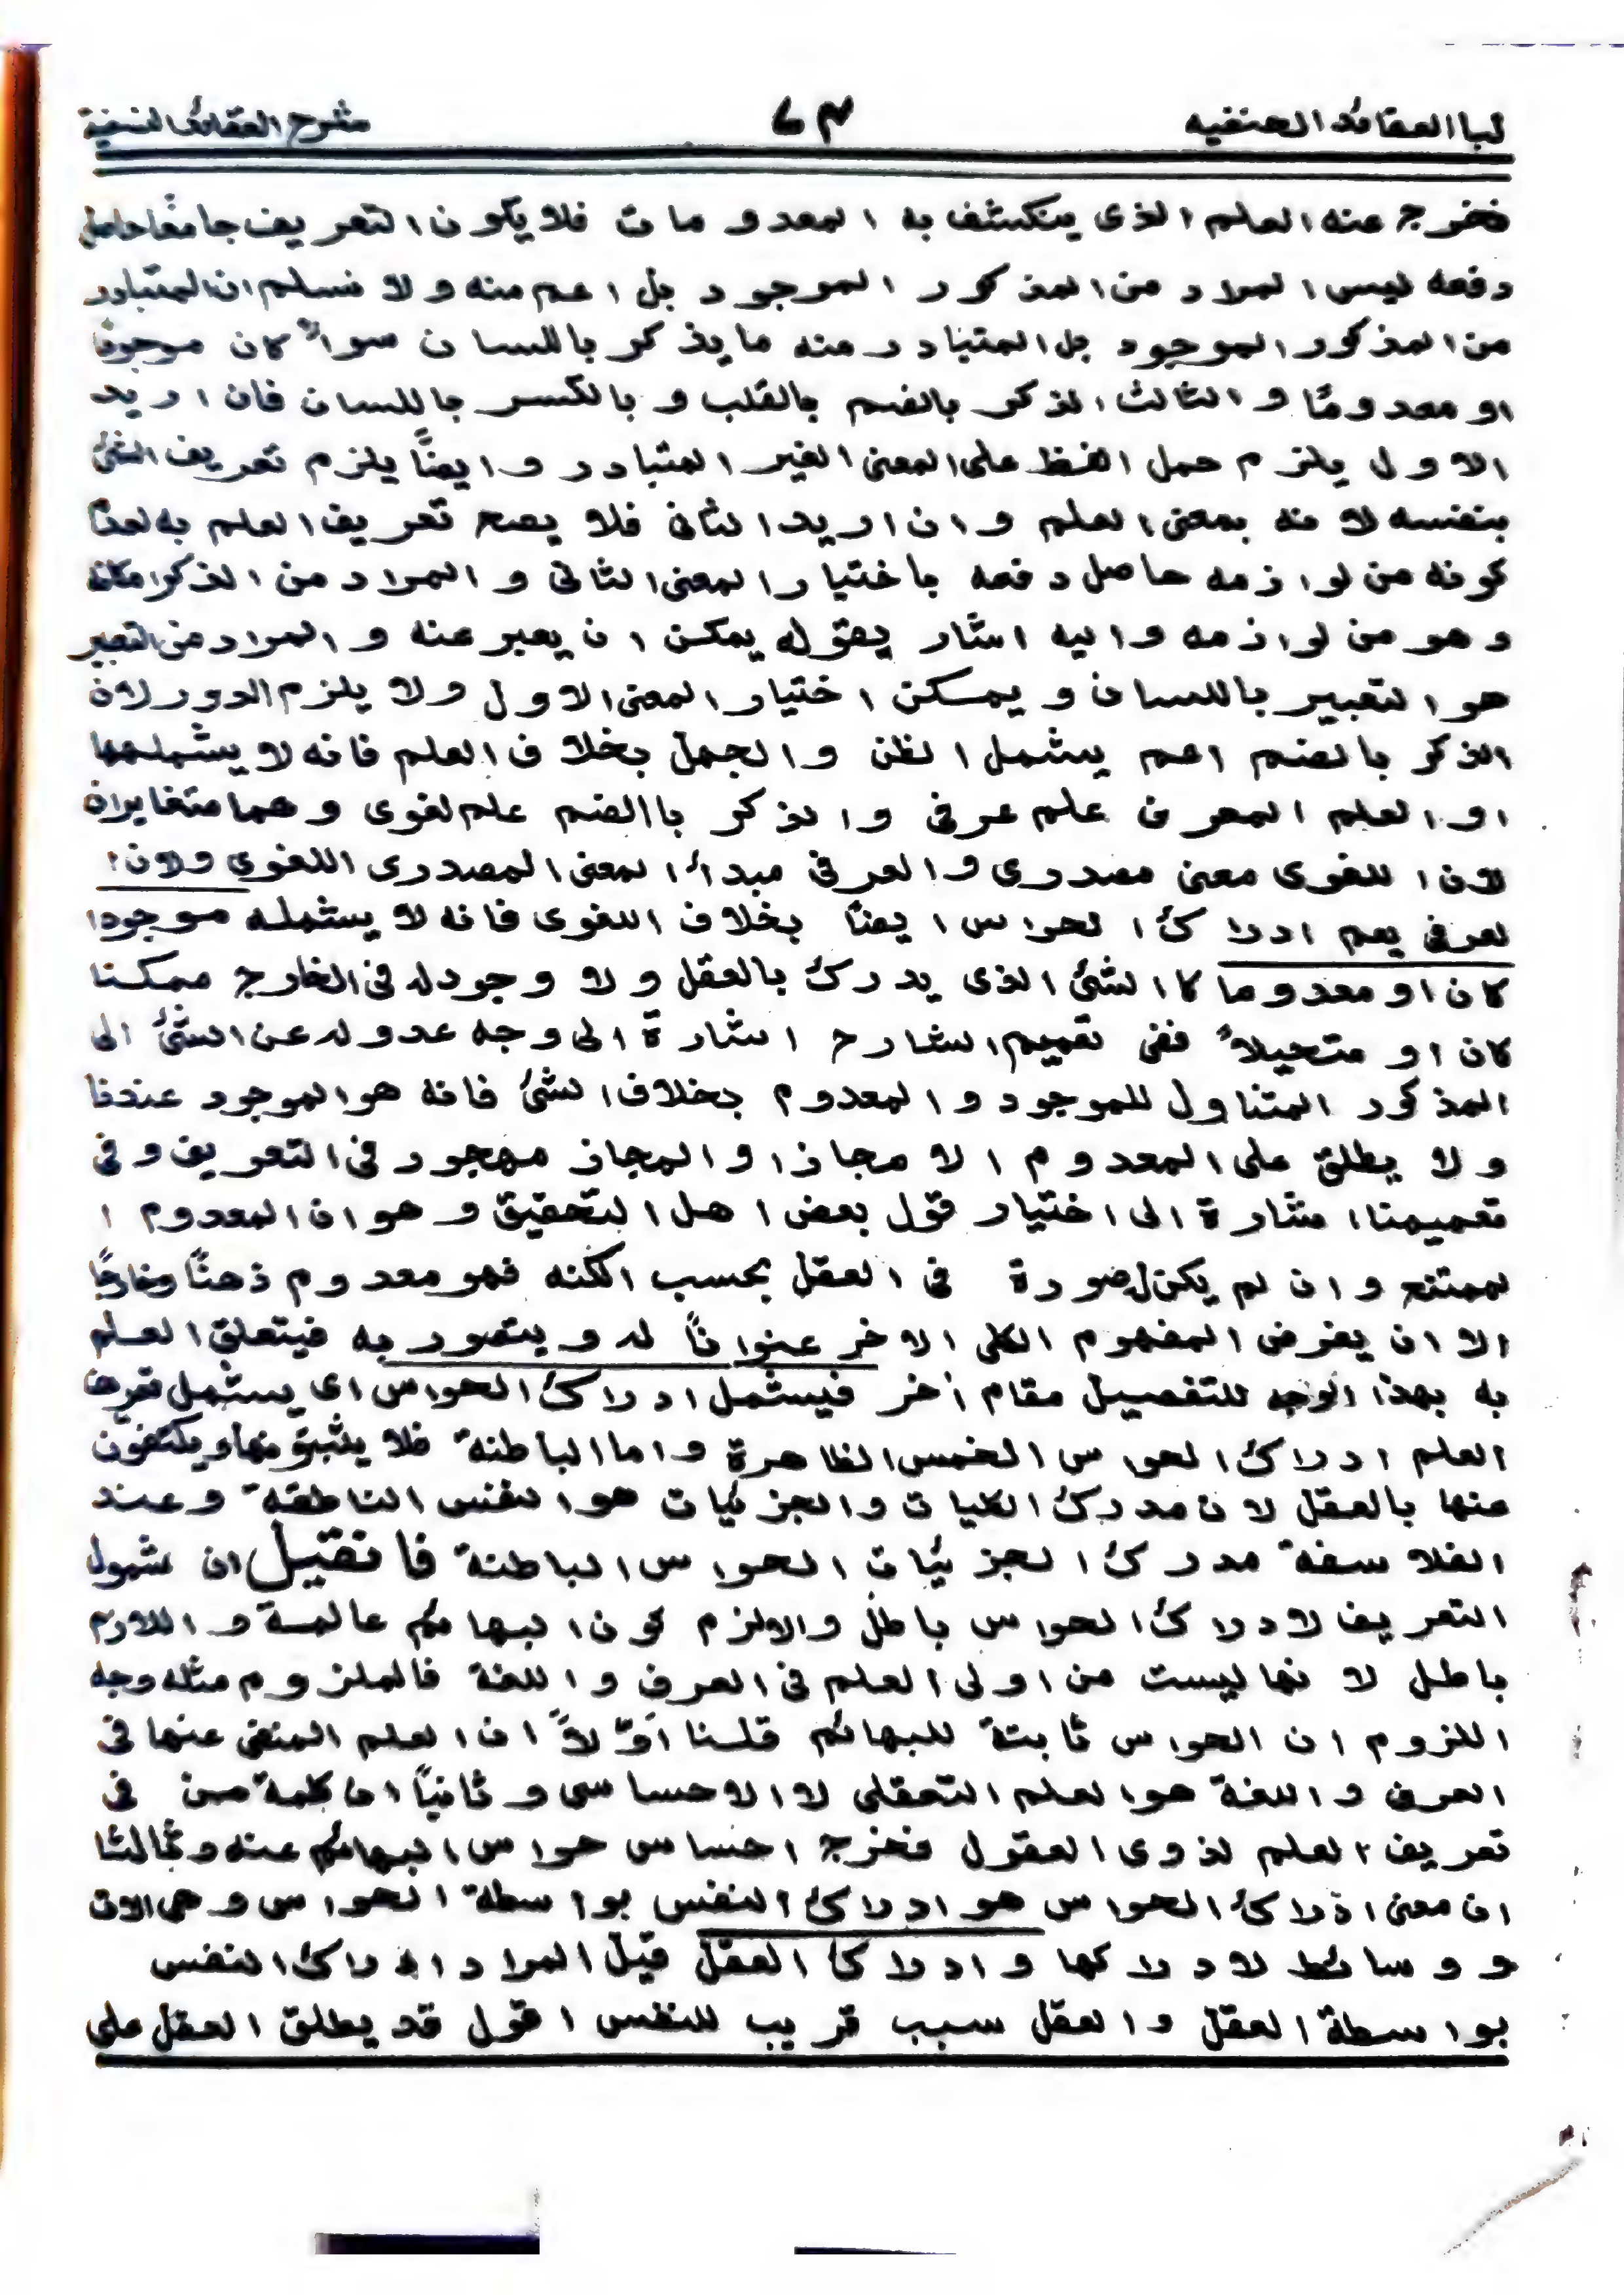 لباالعقائد الحنفيه ٧٣ شرح العقائد النسفية
فخرج عنه العلم الذى ينكشف به المعدومات فلا يكون التعريف جامعًا حاصل
دفعه ليس المراد من المذكور الموجود بل اعم منه ولا نسلم ان المتبادر
من المذكور الموجود بل المتبادر منه ما يذكر باللسان سواءً كان موجودًا
او معدومًا و الثالث الذكر بالضم بالقلب و بالكسر باللسان فان اريد
الاول يلزم حمل الفظ على المعنى الغير المتبادر و ايضًا يلزم تعريف الشئ
بنفسه لانه بمعنى العلم و ان اريد الثانى فلا يصح تعريف العلم به لعدم
كونه من لوازمه حاصل دفعه باختيار المعنى الثانى و المراد من الذكر امكانه
وهو من لوازمه واليه اشار بقوله يمكن ان يعبر عنه و المراد من التعبير
هو التعبير باللسان و يمكن اختيار المعنى الاول ولا يلزم الدور لان
الذكر بالضم اعم يشمل الظن و الجهل بخلاف العلم فانه لا يشملهما
او العلم المعرف علم عرفى و الذكر باالضم علم لغوى وهما متغايران
لان اللغوى معنى مصدرى و العرفى مبدأ المعنى المصدرى اللغوى ولان ا
لعرفى يعم ادراك الحواس ايضًا بخلاف اللغوى فانه لا يشمله موجودا
كان او معدوما كا الشئ الذى يدرك بالعقل ولا وجود له فى الخارج ممكنا
كان او متحيلاً ففى تعميم الشارح اشارة الى وجه عدوله عن الشئ الى
المذكور المتناول للموجود و المعدوم بخلاف الشئ فانه هو الموجود عندنا
ولا يطلق على المعدوم الا مجازا و المجاز مهجور فى التعريف وفى
تعميمنا اشارة الى اختيار قول بعض اهل التحقيق وهو ان المعدوم ا
لممتنع و ان لم يكن له صورة فى العقل بحسب الكنه فهو معدوم ذهنًا وخارجًا
الا ان يفرض المفهوم الكلى الاخر عنوانًا له ويتصور به فيتعلق العلم
به بهذا الوجه للتفصيل مقام أخر فيشمل ادراك الحواس اى يشمل تعريف
العلم ادراك الحواس الخمس الظاهرة و اما الباطنة فلا يثبتونها ويكتفون
عنها بالعقل لان مدرك الكليات والجزئيات هو النفس الناطقة وعند
الفلاسفة مدرك الجزئيات الحواس الباطنة فانقيل ان شمول
التعريف لادراك الحواس باطل والالزم كون البهائم عالمة و اللازم
باطل لانها ليست من اولى العلم فى العرف و اللغة فالملزوم مثله وجه
اللزوم ان الحواس ثابتة للبهائم قلنا اوّلاً ان العلم المنفى عنها فى
العرف و اللغة هو العلم التعقلى لا الاحساسى و ثانيًا ان كلمة من فى
تعريف العلم لذوى العقول فخرج احساس حواس البهائم عنه و ثالثا
ان معنى ادراك الحواس هو ادراك النفس بواسطة الحواس وهى الات
و وسائط لادراكها و ادراك العقل قيل المراد ادراك النفس
بواسطة العقل و العقل سبب قريب للنفس اقول قد يطلق العقل على